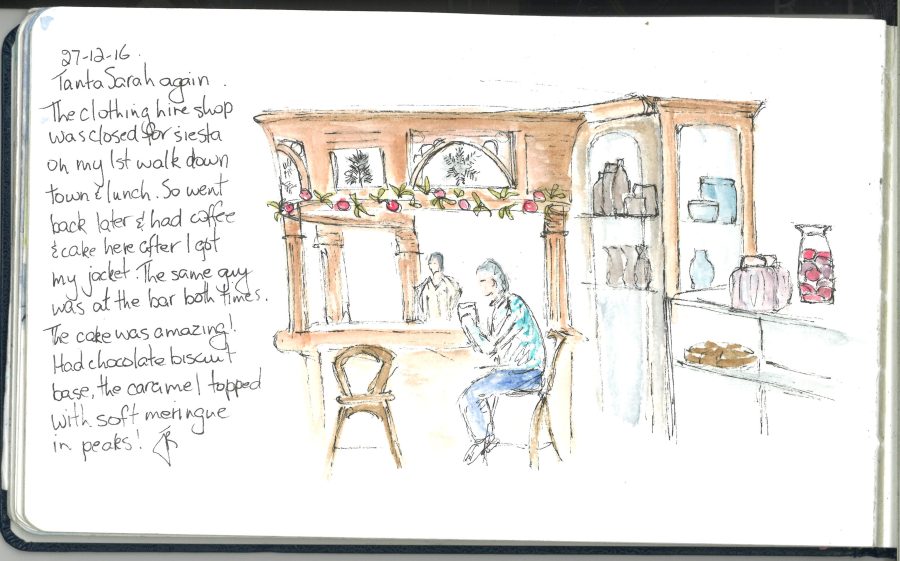 27-12-16.
Tanta Sarah again.
The clothing hire shop
was closed for siesta
on my 1st walk down
town & lunch. So went
back later & had coffee
& cake here after I got
my jacket. The same guy
was at the bar both times.
The cake was amazing!
Had chocolate biscuit
base, the caramel topped
with soft meringue
in peaks!